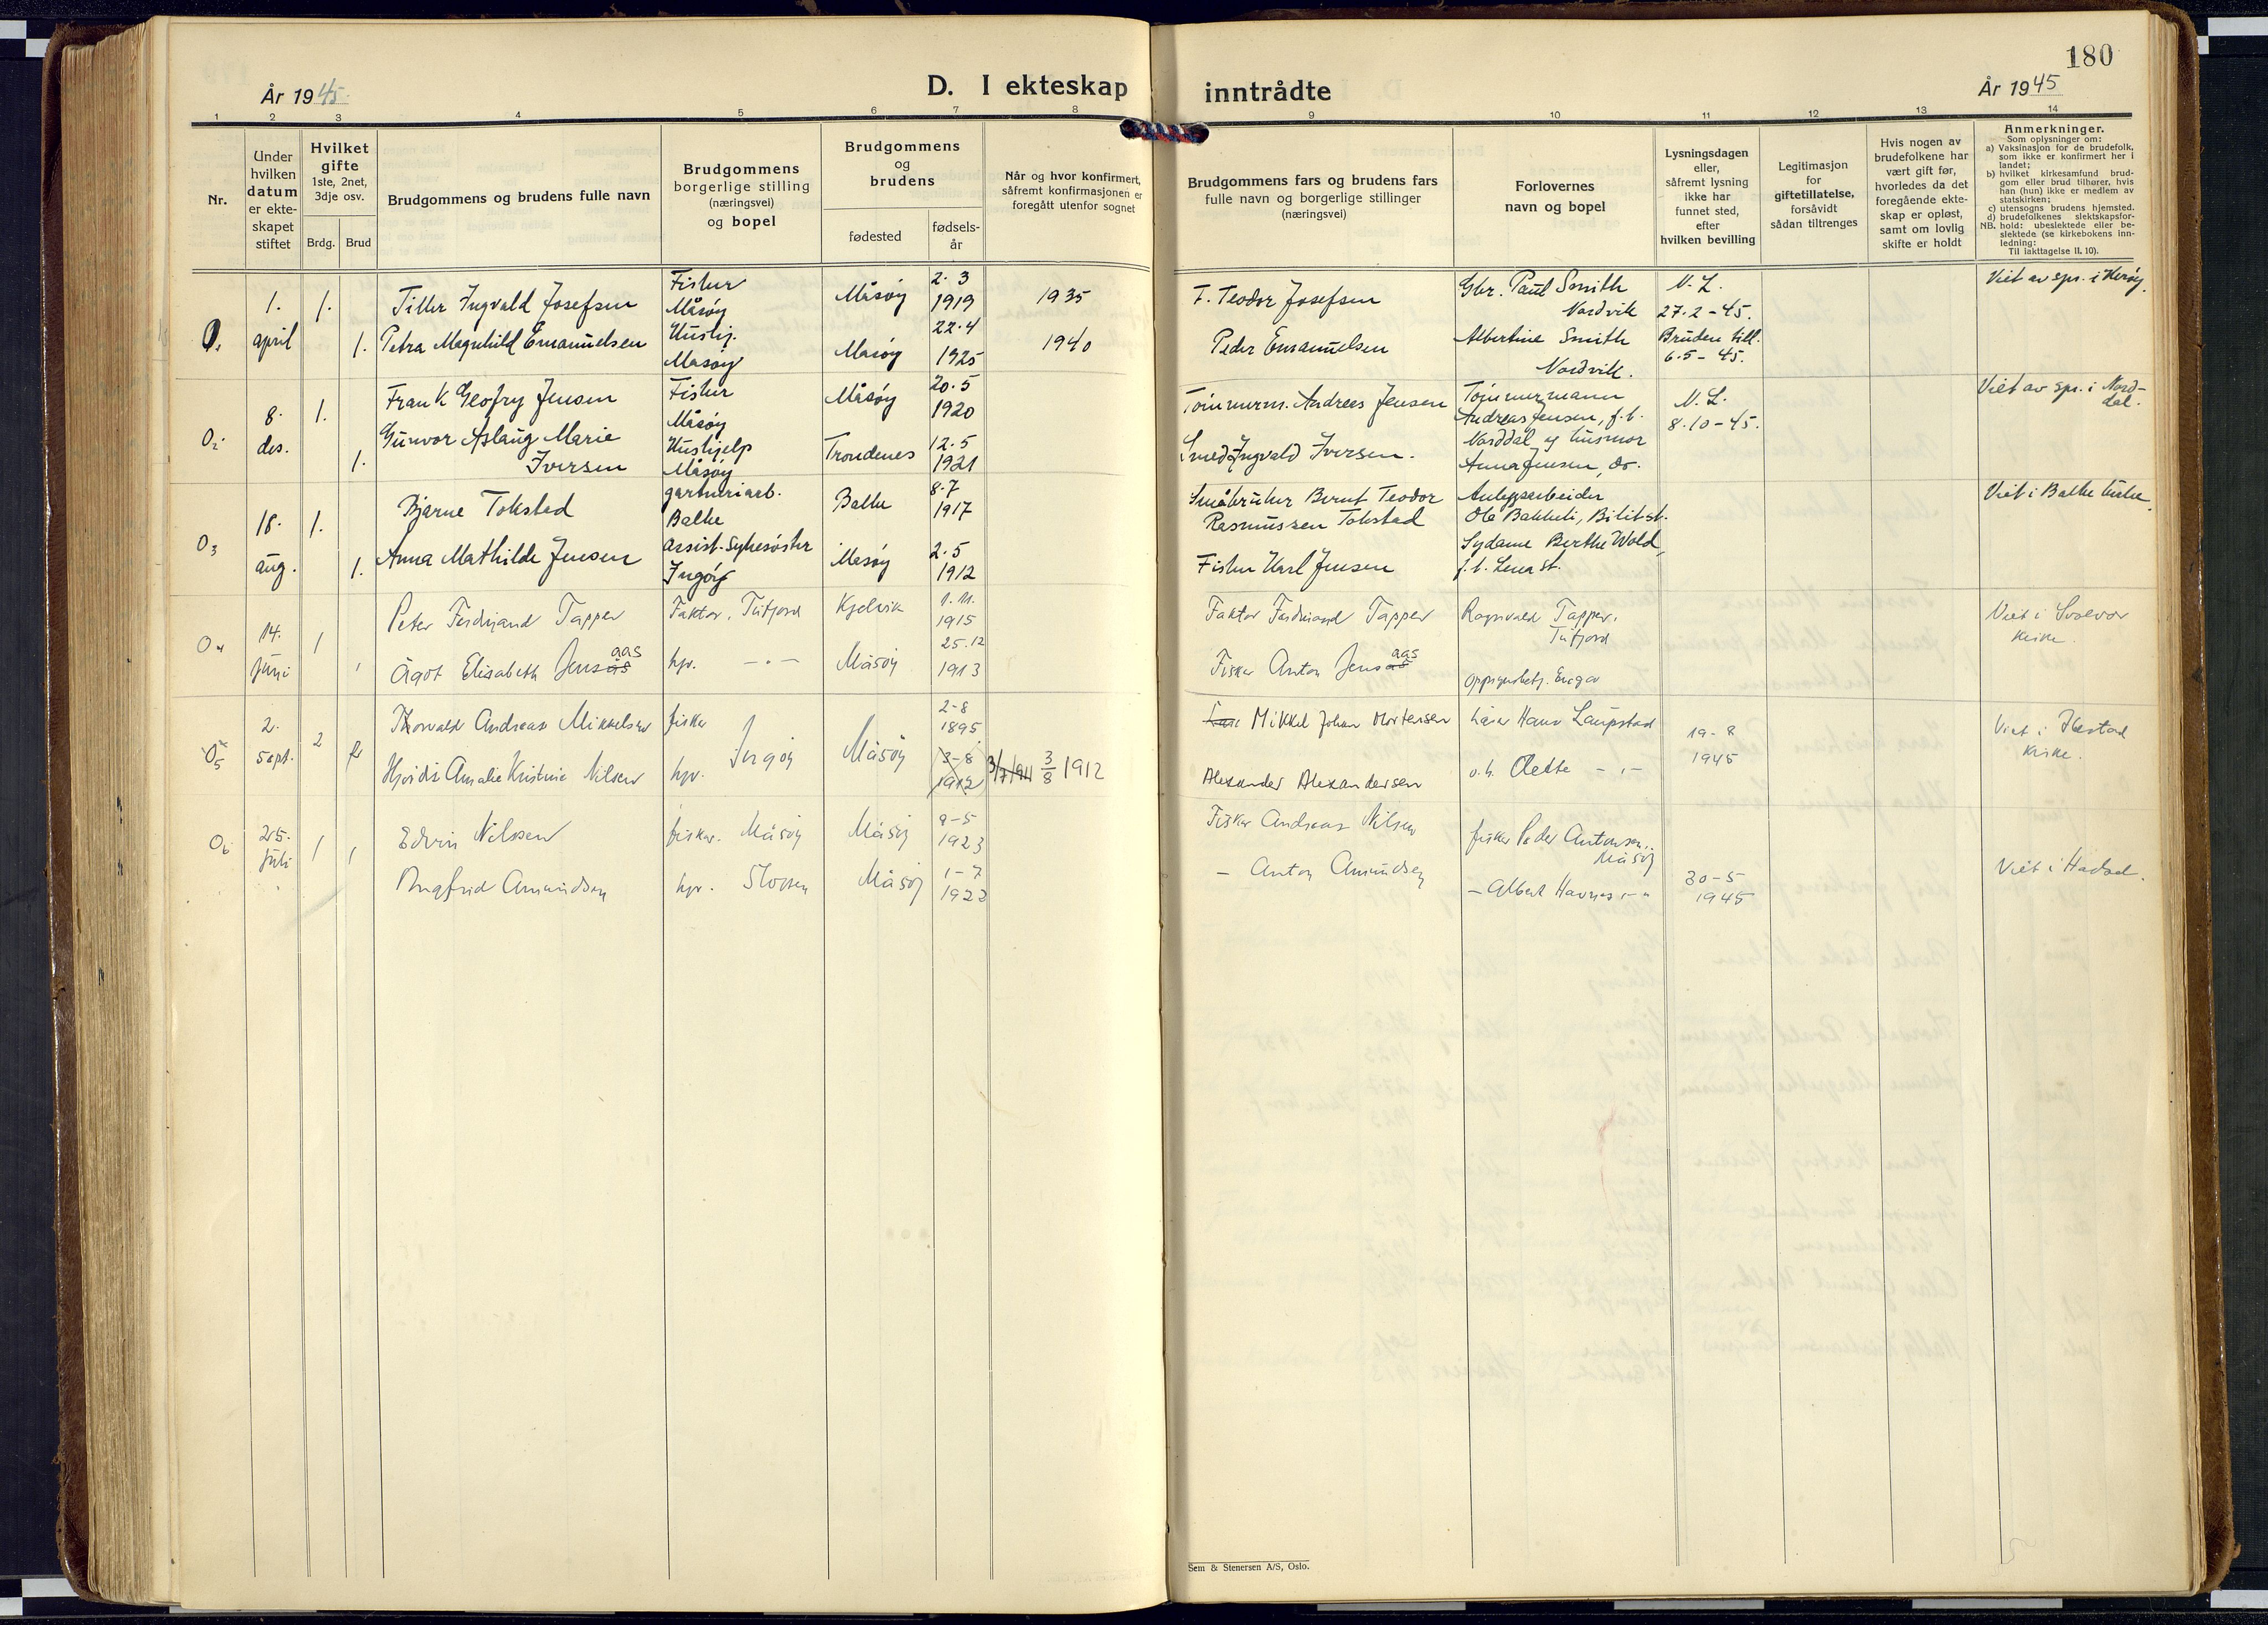 180
År 1945
D. I ekteskap inntrådte
År 1945
1 2 3 4 5 6 7 8 9 10 11 12 13 14
Nr.
Under
hvilken
datum
er ekte-
skapet
stiftet
Hvilket
gifte
1ste, 2net,
3dje osv.
Brdg. Brud
Brudgommens og brudens fulle navn
Brudgommens
borgerlige stilling
(næringsvei)
og bopel
Brudgommens
og
brudens
fødested
fødsels-
år
Når og hvor konfirmert,
såfremt konfirmasjonen er
foregått utenfor sognet
Brudgommens fars og brudens fars
fulle navn og borgerlige stillinger
(næringsvei)
Forlovernes
navn og bopel
Lysningsdagen
eller,
såfremt lysning
ikke har
funnet sted,
efter
hvilken bevilling
Legitimasjon
for
giftetillatelse,
forsåvidt
sådan tiltrenges
Hvis nogen av
brudefolkene har
vært gift før,
hvorledes da det
foregående ekte-
skap er opløst,
samt om lovlig
skifte er holdt
Anmerkninger.
Som oplysninger om:
a) Vaksinasjon for de brudefolk,
som ikke er konfirmert her i
landet;
b) hvilket kirkesamfund brud-
gom eller brud tilhører, hvis
han (hun) ikke er medlem av
statskirken;
c) utensogns brudens hjemsted.
d) brudefolkenes slektskapsfor-
NB. hold: ubeslektede eller be-
slektede (se kirkebokens inn-
ledning:
Til Iakttagelse II. 10).
1.
april
1.
1.
Ingvald Josefsen
Petra Magnhild Emanuelsen
Fisker
Måsøy
Hushj.
Måsøy
Måsøy
Måsøy
2.3
1919
22.4
1925
1935
1940
F. Teodor Josefsen
Peder Emanuelsen
Gbr. Paul Smith
Nordvik
Albertine Smith
Nordvik.
N. L.
27.2-45.
Bruden till.
6.5-45.
Viet av spr. i Herøy.
02
8.
des.
1.
1.
Frank Geofry Jensen
Gunvor Aslaug Marie
Iversen
Fisker
Måsøy
Hushjelp
Måsøy
Måsøy
Trondenes
20.5
1920
12.5
1921
Tømmerm. Andreas Jensen
Smed Ingvald Iversen.
Tømmermann
Andreas Jensen, f.t.
Norddal og husmor
Anna Jensen, do.
N. L.
8.10-45.
Viet av spr. i Nord-
dal.
03
18.
aug.
1.
1.
Bjarne Tokstad
Anna Mathilde Jensen
gartneriarb.
Balke
Assist. Sykesøster
Ingøy
Balke
Måsøy
8.7
1917
2.5
1912
Småbruker Bernt Teodor
Rasmussen Tokstad
Fisker Karl Jensen
Anleggsarbeider
Ole Bakkeli, Bilit st.
Sydame Berthe Wold,
f.t. Lena st.
Viet i Balke kirke.
04
14.
juni
1
1
Peter Ferdinand Tapper
Ågot Elisabeth Jensaas
Faktor, Tufjord
hjv. - " -
Kjelvik
Måsøy
1.11.
1915
25.12
1913
Faktor Ferdinand Tapper
Fisker Anton Jensaas
Ragnvald Tapper,
Tufjord
Viet i Svolvær
kirke.
05
2.
sept.
2
Thorvald Andreas Mikkelsen
Hjørdis Amalie Kristine Nilsen
fisker
Ingøy
hjv.
Måsøy
2-8
1895
3-8
1912
3/7 1911 3/8 1912
Mikkel Johan Mortensen
Alexander Alexandersen
Lærer Hans Laupstad
o.h. Olette - " -
19-8
1945
Viet i Ibestad
kirke.
06
25.
juli
1
1
Edvin Nilssen
Ingfrid Amundsen
fisker. Måsøy
hjv.
Måsøy
Måsøy
9-5
1923
1-7
1922
Fisker Andreas Nilsen
- Anton Amundsen
fisker Peder Antonsen,
Måsøy
- Albert Havnes - "
30-5
1945
Viet i Hadsel.
Sem & Stenersen A/S, Oslo.